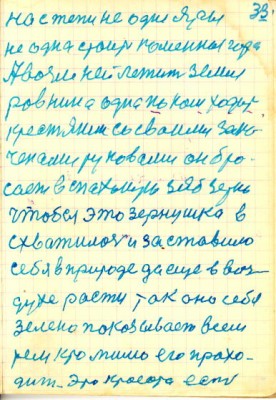 39.
на степи не одни яры
не одна стоит каменная гора
А возле ней лежит земля
ровнина одна по ком ходит
крестянин со своими зак
ченами руковами он бро-
сает в пахоту зерно
чтобы это зернушка в
схватилось и заставило
себя в природе да еще в воз-
духе расти так оно себя
зелено показывает всем
тем кто мимо его прохо-
дит. это красота есть